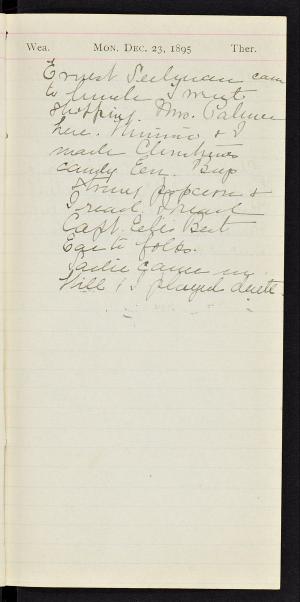 Wea. MON. DEC. 23, 1895 Ther.
Ernest Seelyman came
to lunch I went
shopping. Mrs. Palmer
here. Minnie & I
made Christmas
candy Eve. Bup
strung popcorn &
I read, I read
Capt. Eli's Best
Ear to folks.
Sadie came in
Will & I played duette